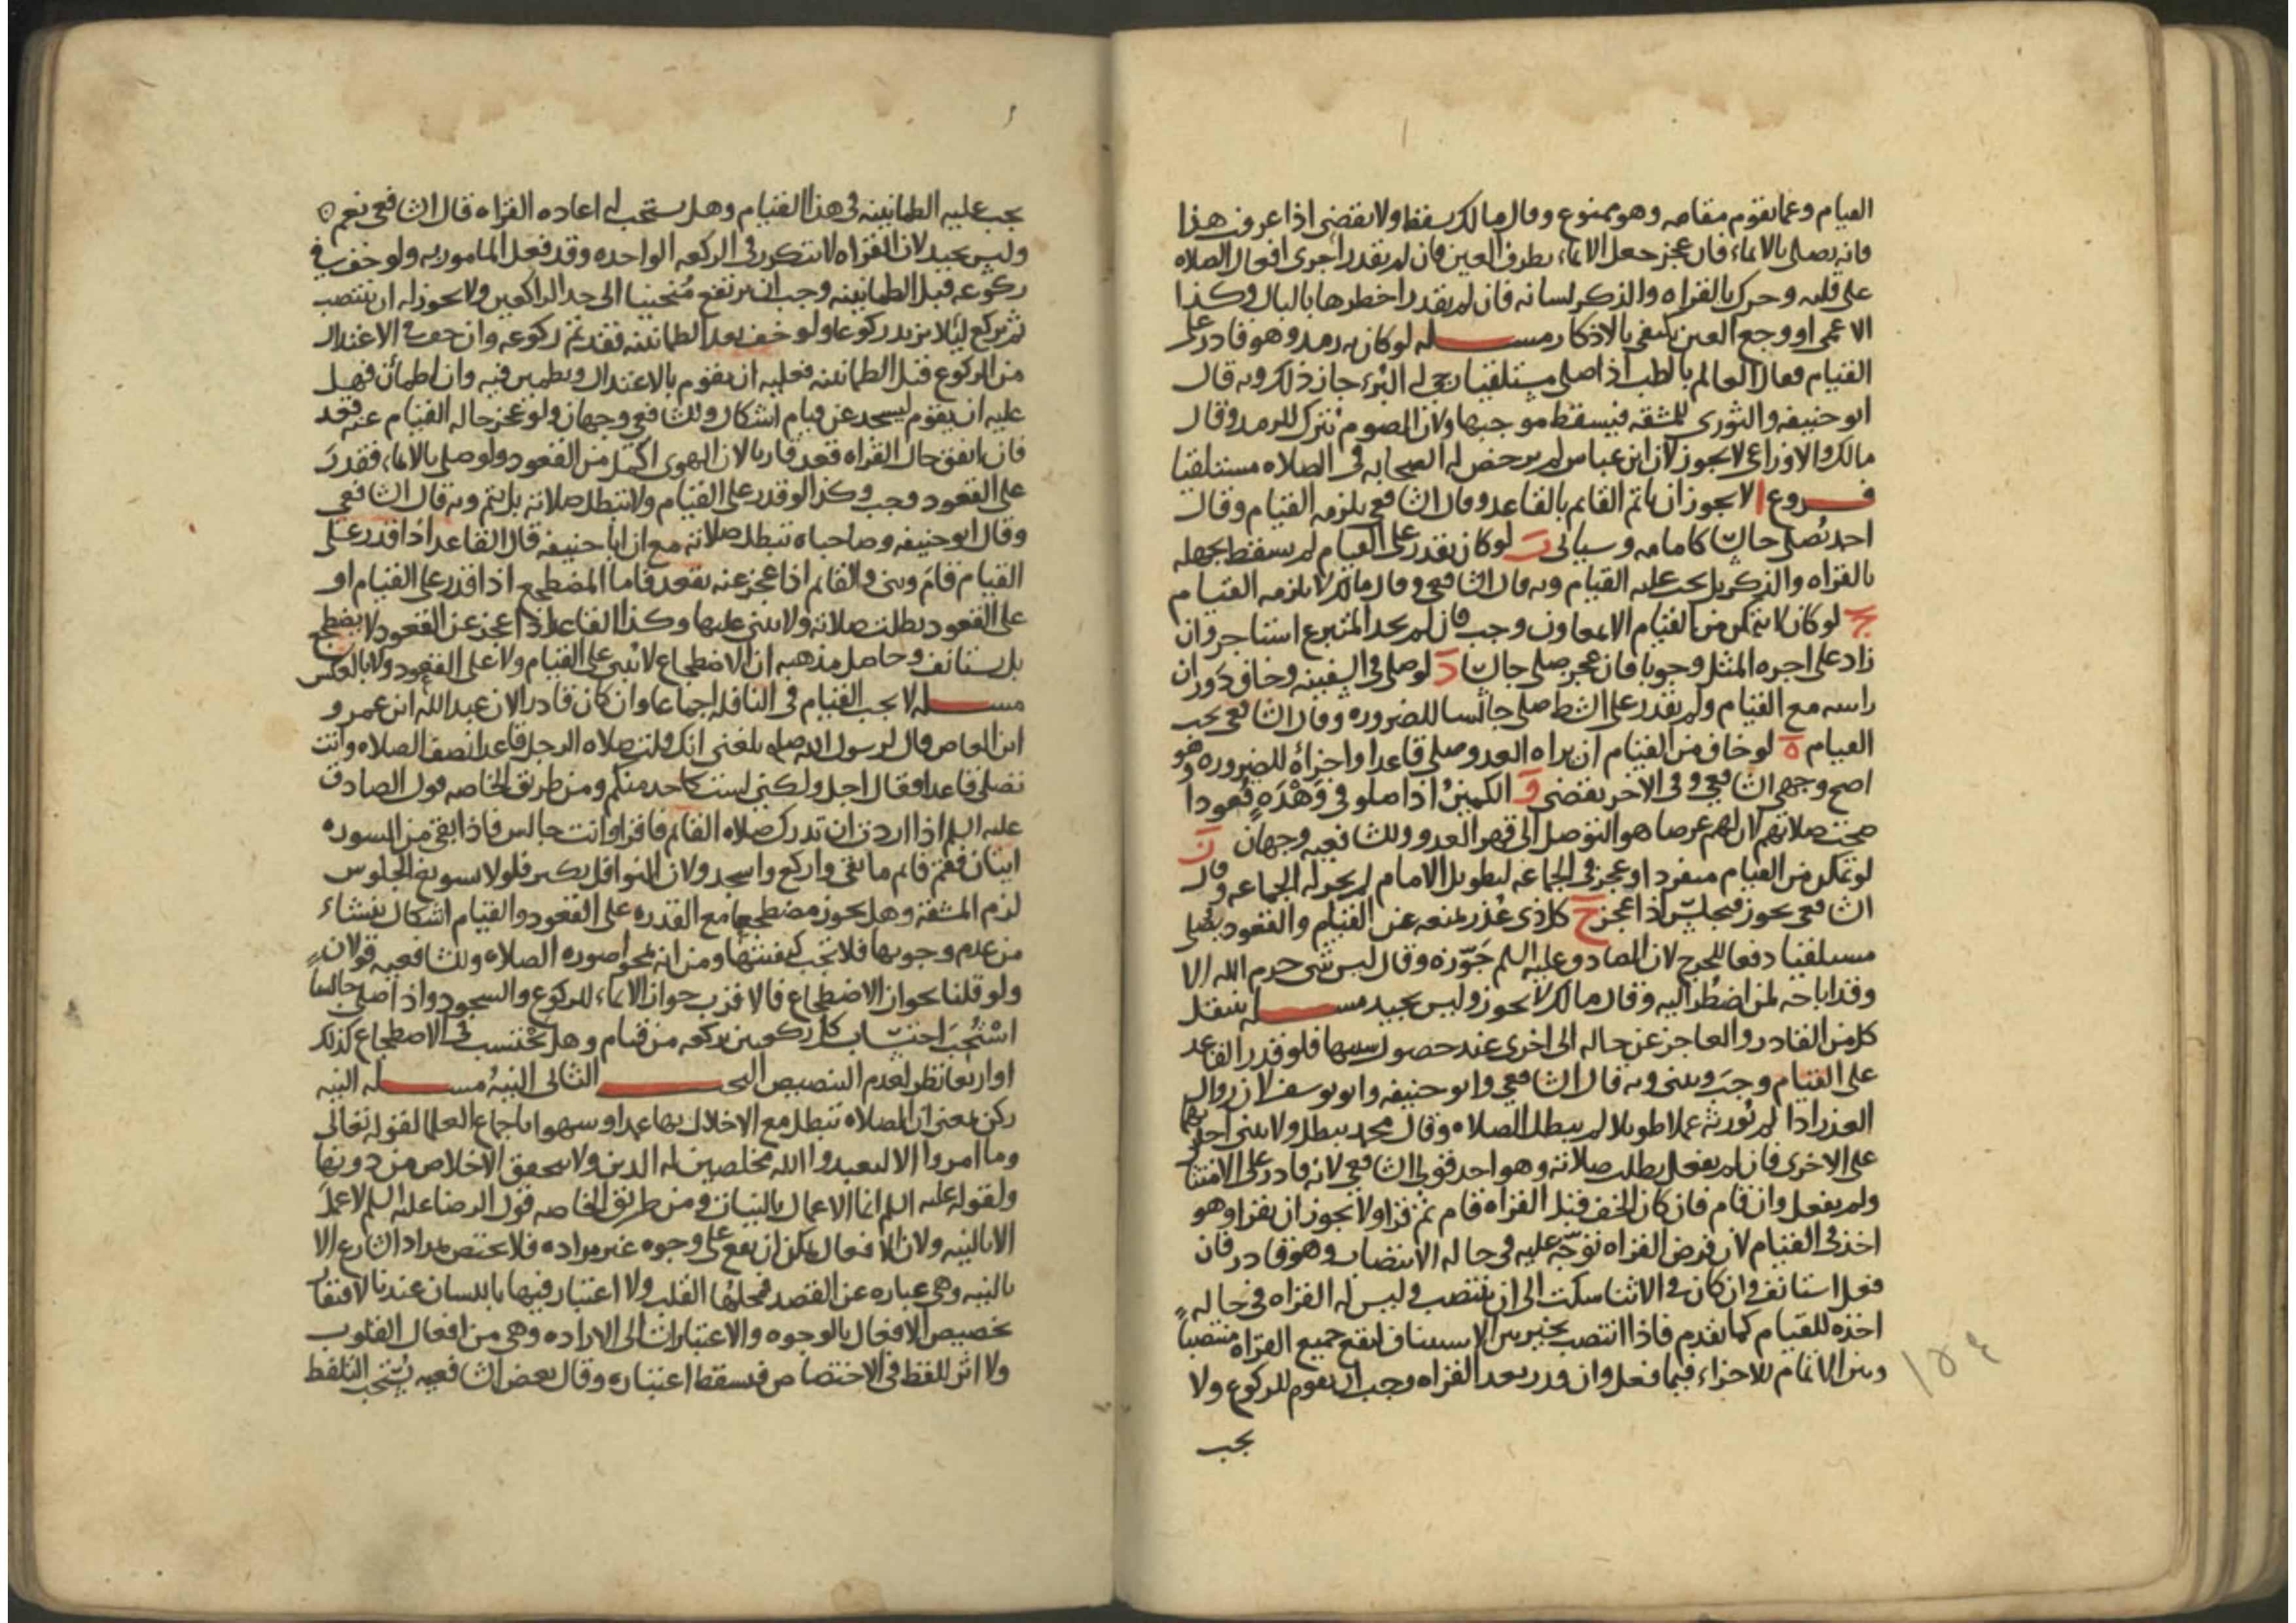 القيام وعما يقوم مقامه وهو ممنوع وقال مالك يسقط ولا يقضى اذا عرفت هذا
فانه يصلى بالايماء فان عجز جعل الايماء بطرف العين فان لم يقدر اجرى افعال الصلاه
على قلبه وحرك بالقراه والذكر لسانه فان لم يقدر اخطرها بالبال وكذا
الاعمى او وجع العين يكتفى بالاذكار مسله لو كان به رمد وهو قادر على
القيام فقال العالم بالطب اذا صلى مستلقيا رجى له البُرْء جاز ذلك وبه قال
ابو حنيفه والثورى للمشقه فيسقط موجبها ولان الصوم يترك للرمد وقال
مالك والاوزاعى لا يجوز لان ابن عباس لم يرخص له الصحابه فى الصلاه مستلقيا
فروع ا لا يجوز ان ياتم القائم بالقاعد وقال الشافعى يلزمه القيام وقال
احمد يُصلى جالسا كامامه وسياتى ب لو كان يقدر على القيام لم يسقط بجهله
بالقراه والذكر بل يجب عليه القيام وبه قال الشافعى وقال مالك لا يلزمه القيام
ج لو كان لا يتمكن من القيام الا بمعاون وجب فان لم يجد المتبرع استاجر وان
زاد على اجره المثل وجوبا فان عجز صلى جالسا د لو صلى فى السفينه وخاف دوران
راسه مع القيام ولم يقدر على الشط صلى جالسا للضروره وقال الشافعى يجب
القيام ه لو خاف من القيام ان يراه العدو صلى قاعدا واجزأهُ للضروره وهو
اصح وجهى الشافعى وفى الاخر يقضى و الكمينُ اذا صلوا فى وَهْدَهٍ قُعودا
صحت صلاتهم لان لهم غرضا هو التوصل الى قهر العدو وللشافعيه وجهان ز
لو تمكن من القيام منفردا وعجز فى الجماعه لتطويل الامام لم يجز له الجماعه وقال
الشافعى يجوز فيجلس اذا عجز ح كل ذى عُذر يمنعه عن القيام والقعود يُصلى
مستلقيا دفعا للحرج لان الصادق عليه السلم جَوّزه وقال ليس شى حرم الله الا
وقد اباحه لمن اضُطر اليه وقال مالك لا يجوز وليس بجيد مسله ينتقل
كل من القادر والعاجز عن حاله الى اخرى عند حصول سببها فلو قدر القاعد
على القيام وجب وبنى وبه قال الشافعى وابو حنيفه وابو يوسف لان زوال
العذر اذا لم يُورثه عملا طويلا لم يبطل الصلاه وقال محمد يبطل ولا يبنى احديهما
على الاخرى فان لم يفعل بطلت صلاته وهو احد قولى الشافعى لانه قادر على الامتثال
ولم يفعل وان قام فان كان الخف قبل القراه قام ثم قرا ولا يجوز ان يقرا وهو
اخذ فى القيام لان فرض القراه توجّه عليه فى حاله الانتصاب وهو قادر فان
فعل استانف وان كان فى الاثنا سكت الى ان ينتصب وليس له القراه فى حاله
اخذه للقيام كما تقدم فاذا انتصب تخير بين الاستيناف ليقع جميع القراه منتصبا
وبين الاتمام للاجزاء فيما فعل وان قدر بعد القراه وجب ان يقوم للركوع ولا
يجب
١٥٤
يجب عليه الطمانينه فى هذا القيام وهل يستحب له اعاده القراه قال الشافعى نعم
وليس بجيد لان القراه لا تتكرر فى الركعه الواحده وقد فعل المامور به ولو خف فى
ركوعه قبل الطمانينه وجب ان يرتفع مُنحنيا الى حد الراكعين ولا يجوز له ان ينتصب
ثم يركع ليلا يزيد ركوعا ولو خف بعد الطمانينه فقد تم ركوعه وان خف فى الاعتدال
من الركوع قبل الطمانينه فعليه ان يقوم بالاعتدال ويطمين فيه وان اطمأن فهل
عليه ان يقوم ليسجد عن قيام اشكال وللشافعى وجهان ولو عجز حاله القيام عنه قعد
فان اتفق حال القراه قعد قاريا لان الهوى اكمل من القعود ولو صلى بالايماء فقدر
على القعود وجب وكذا لو قدر على القيام ولا تبطل صلاته بل يتم وبه قال الشافعى
وقال ابو حنيفه وصاحباه تبطل صلاته مع ان ابا حنيفه قال القاعد اذا قدر على
القيام قام وبنى والقائم اذا عجز عنه يقعد فاما المضطجع اذا قدر على القيام او
على القعود بطلت صلاته ولا يبنى عليها وكذا القاعد اذا عجز عن القعود لا يضطجع
بل يستانف وحاصل مذهبه ان الاضطجاع لا يُبنى على القيام ولا على القعود ولا بالعكس
مسله لا يجب القيام فى النافله اجماعا وان كان قادرا لان عبد الله ابن عمرو
ابن العاص قال لرسول الله صلعم بلغنى انك قلت صلاه الرجل قاعدا نصف الصلاه وانت
تصلى قاعدا فقال اجل ولكنى لست كاحد منكم ومن طريق الخاصه قول الصادق
عليه السلم اذا اردت ان تدرك صلاه القائم فاقرا وانت جالس فاذا بقى من السوره
ايتان فقم فاتم ما بقى واركع واسجد ولان النوافل تكثر فلولا تسويغ الجلوس
لزم المشقه وهل يجوز مضطجعا مع القدره على القعود والقيام اشكال ينشاء
من عدم وجوبها فلا تجب كيفيتها ومن انه يمحوا صوره الصلاه وللشافعيه قولان
ولو قلنا بجواز الاضطجاع فالاقرب جواز الايماء للركوع والسجود واذا صلى جالسا
اسْتُحِبَ احتساب كل ركعتين بركعه من قيام وهل تحتسب فى الاضطجاع كذلك
او اربعا نظر لعدم التنصيص البحث الثانى النيهُ مسله النيه
ركن بمعنى ان الصلاه تبطل مع الاخلال بها عمدا وسهوا باجماع العلما لقوله تعالى
وما امروا الا ليعبدوا الله مخلصين له الدين ولا يتحقق الاخلاص من دونها
ولقوله عليه السلم انما الاعمال بالنيات ومن طريق الخاصه قول الرضا عليه السلم لا عمل
الا بالنيه ولان الافعال يمكن ان تقع على وجوه غير مراده فلا يختص بمراد الشارع الا
بالنيه وهى عباره عن القصد فمحلها القلب ولا اعتبار فيها باللسان عندنا لافتقار
تخصيص الافعال بالوجوه والاعتبارات الى الاراده وهى من افعال القلوب
ولا اثر للفظ فى الاختصاص فسقط اعتباره وقال بعض الشافعيه يُستحب التلفظ